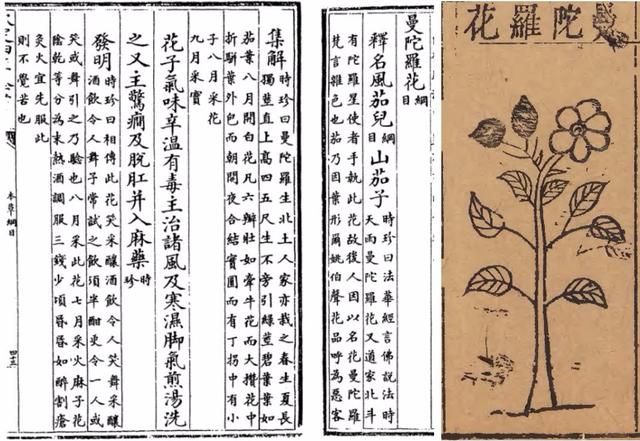 曼陀羅花
曼陀羅花 綱目
釋名風茄兒 綱目 山茄子 時珍曰法華經言佛說法時
天雨曼陀羅花又道家北斗
有陀羅星使者手執此花故後人因以名花曼陀羅
梵言雜色也茄乃因葉形爾姚伯聲花品呼為惡客
集解 時珍曰曼陀羅生北土人家亦栽之春生夏長
獨莖直上高四五尺生不旁引綠莖碧葉葉如
茄葉八月開白花凡六瓣狀如牽牛花而大攢花中
折騈葉外包而朝開夜合結實圓而有丁拐中有小
子八月采花
九月采實
花子氣味辛溫有毒主治諸風及寒濕脚氣煎湯洗
之又主驚癇及脫肛并入麻藥 時珍
發明 時珍曰相傳此花笑采釀酒飲令人笑舞采釀
酒飲令人舞予常試之飲須半酣更令一人或
笑或舞引之乃驗也八月采此花七月采火麻子花
陰乾等分為末熱酒調服三錢少頃昏昏如醉割瘡
灸火宜先服此
則不覺苦也
本草綱目
四三